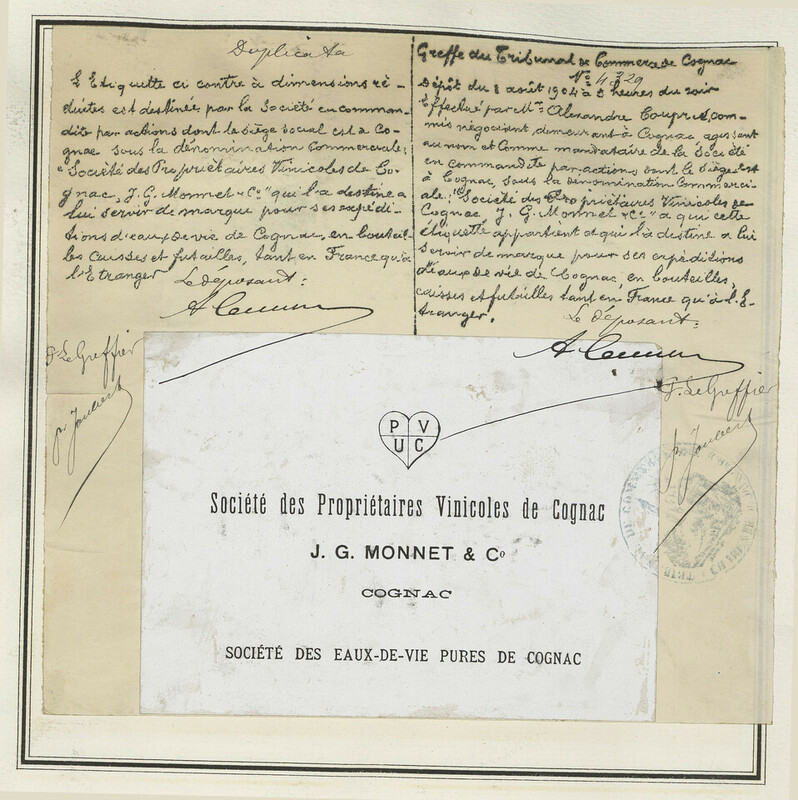 Duplicata
L'Etiquette ci contre à dimensions ré-
duites est destinée par la Société en comman-
dite par actions dont le siège social est à Co-
gnac sous la dénomination commerciale:
"Société des Propriétaires Vinicoles de Co-
gnac, J. G. Monnet & Cº" qui l'a destine a
lui servir de marque pour ses expédi-
tions d'eaux de vie de Cognac, en bouteil-
les caisses et futailles, tant en France qu'à
l'Etranger
Le déposant:
P Le Greffier
pr Joubert
Greffe du Tribunal de Commerce de Cognac
Nº 4329
Dépôt du 8 août 1904 à 2 heures du soir
Effectué par Mr Alexandre com-
mis négociant, demeurant à Cognac agissant
au nom et comme mandataire de la Société
en Commandite par actions dont le Siège est
à Cognac, sous la dénomination Commerci-
ale: "Société des Propriétaires Vinicoles de
Cognac, J. G. Monnet & Cº" a qui cette
étiquette appartient et qui l'a destine a lui
servir de marque pour ses expéditions
d'eaux de vie de Cognac, en bouteilles,
caisses et futailles tant en France qu'à l'E-
tranger.
Le déposant:
P. Le Greffier
pr Joubert
P V
U C
Société des Propriétaires Vinicoles de Cognac
J. G. MONNET & Cº
COGNAC
SOCIÉTÉ DES EAUX-DE-VIE PURES DE COGNAC